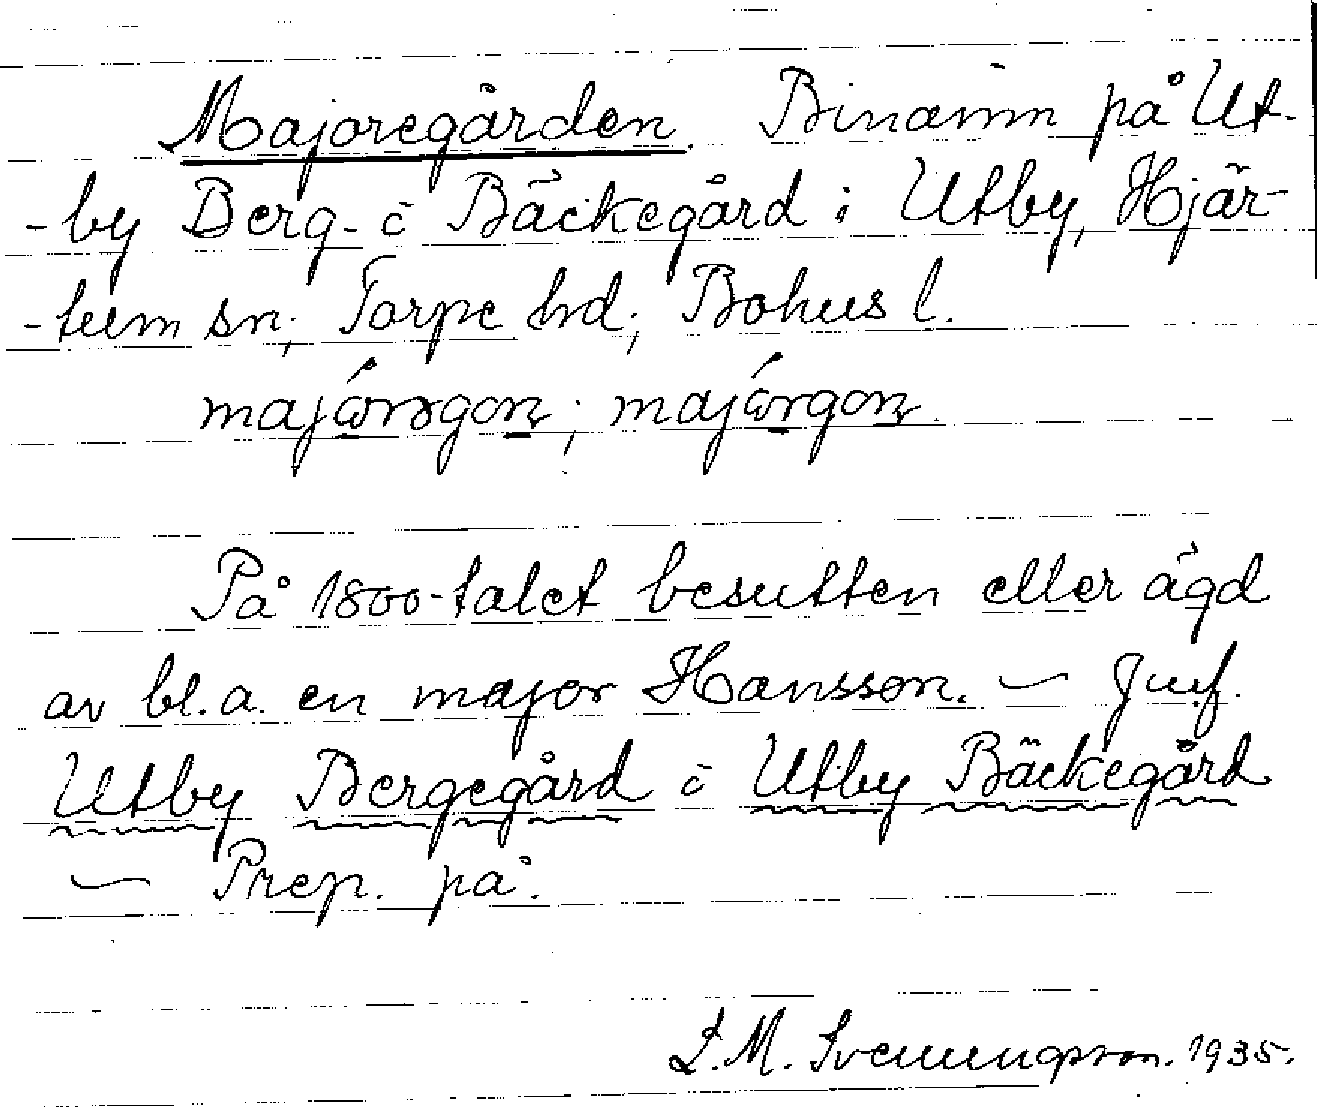 Majoregården. Binamn på Ut-
-by Berg- o Bäckegård i Utby, Hjär-
-tum sn; Torpe hd; Bohus l.
På 1800-talet besutten eller ägd
av bl.a. en major Hansson. — Jmf.
Utby Bergegård o Utby Bäckegård
— Prep. på.
S.M. Svenungsson. 1935.